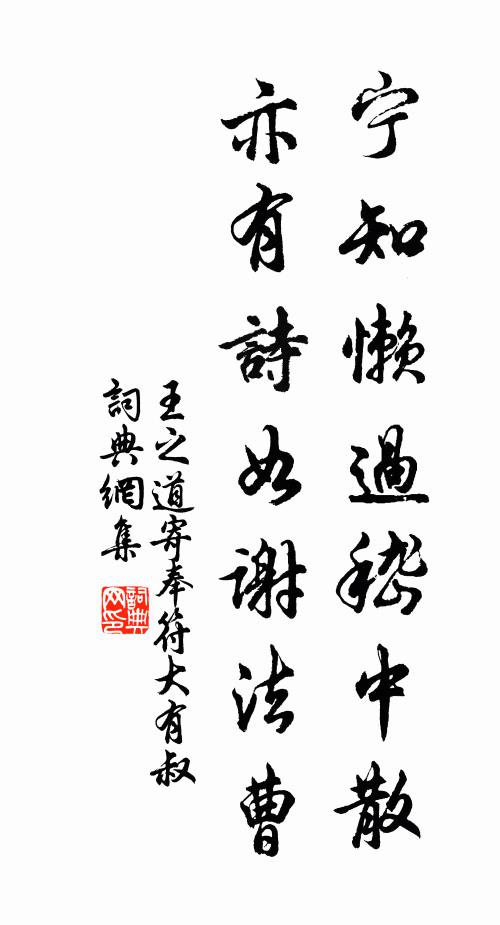 宁知懶過嵇中散
亦有詩如謝法曹
王之道寄奉符大有叔
詞典網集
詞典
网印